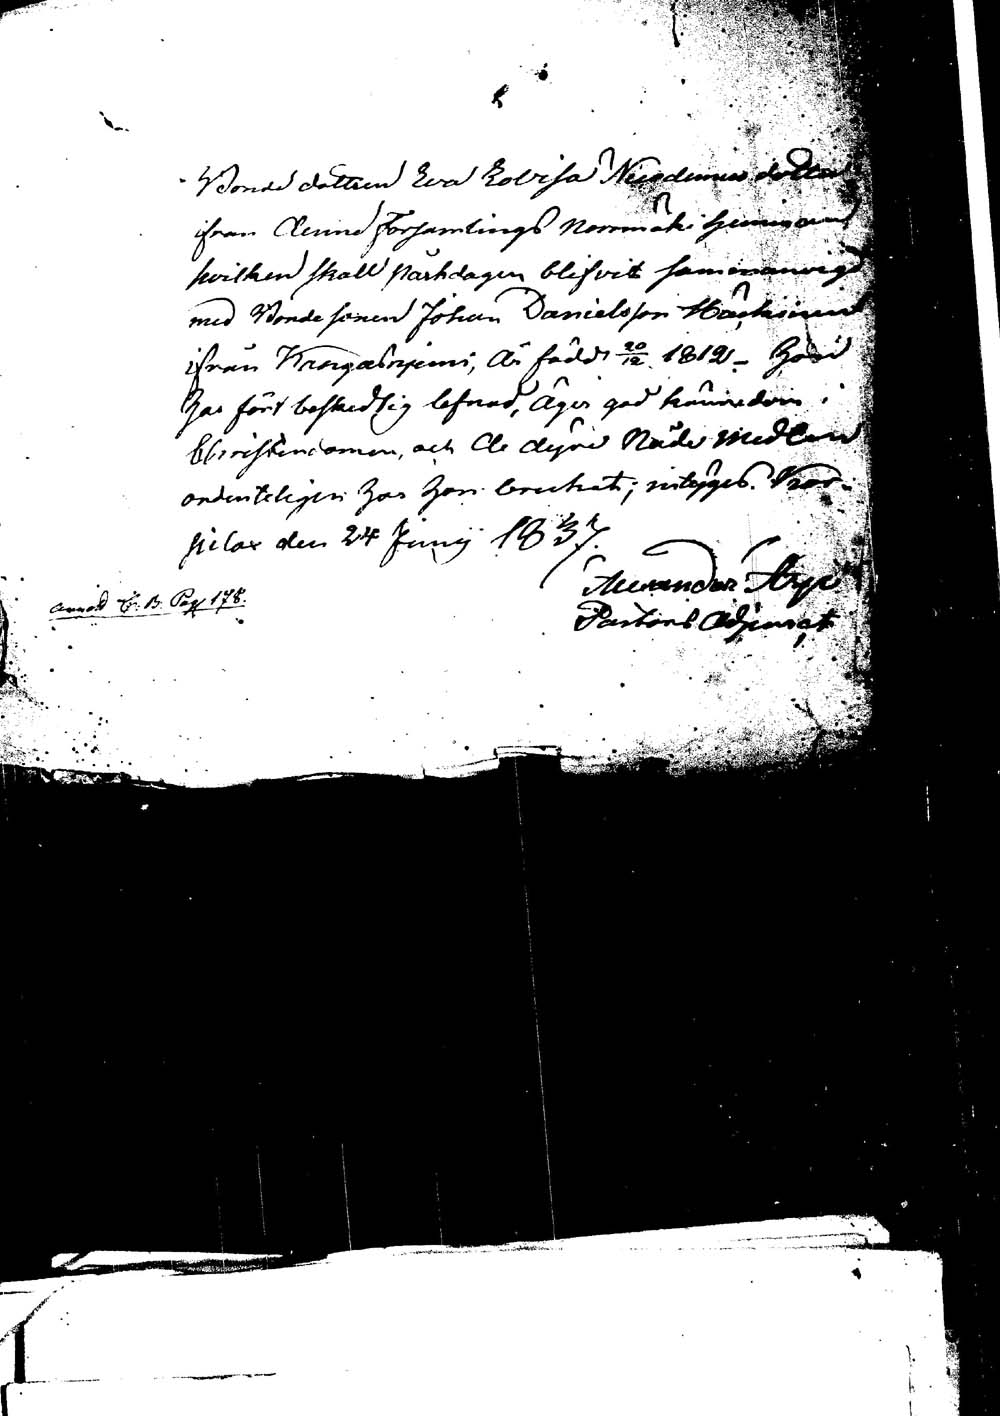 Bondedottren Eva Lovisa Nicodemus dotter
ifrån denne Församlings Nommäki hemman
hvilken skall Påskdagen blifvit sammanvigd
med Bondesonen Johan Danielsson Häckinen
ifrån ; är född 20/12 1812 – Hon
har fört beskedlig lefnad, äger god kännedom i
Christendomen, och de dyre Nåde medlen
ordenteligen har hon brukat; intÿges. Kor-
pilax den 24 Junij 1837.
Alexander
Pastors Adjunct
annot. C. B. Pag 178.